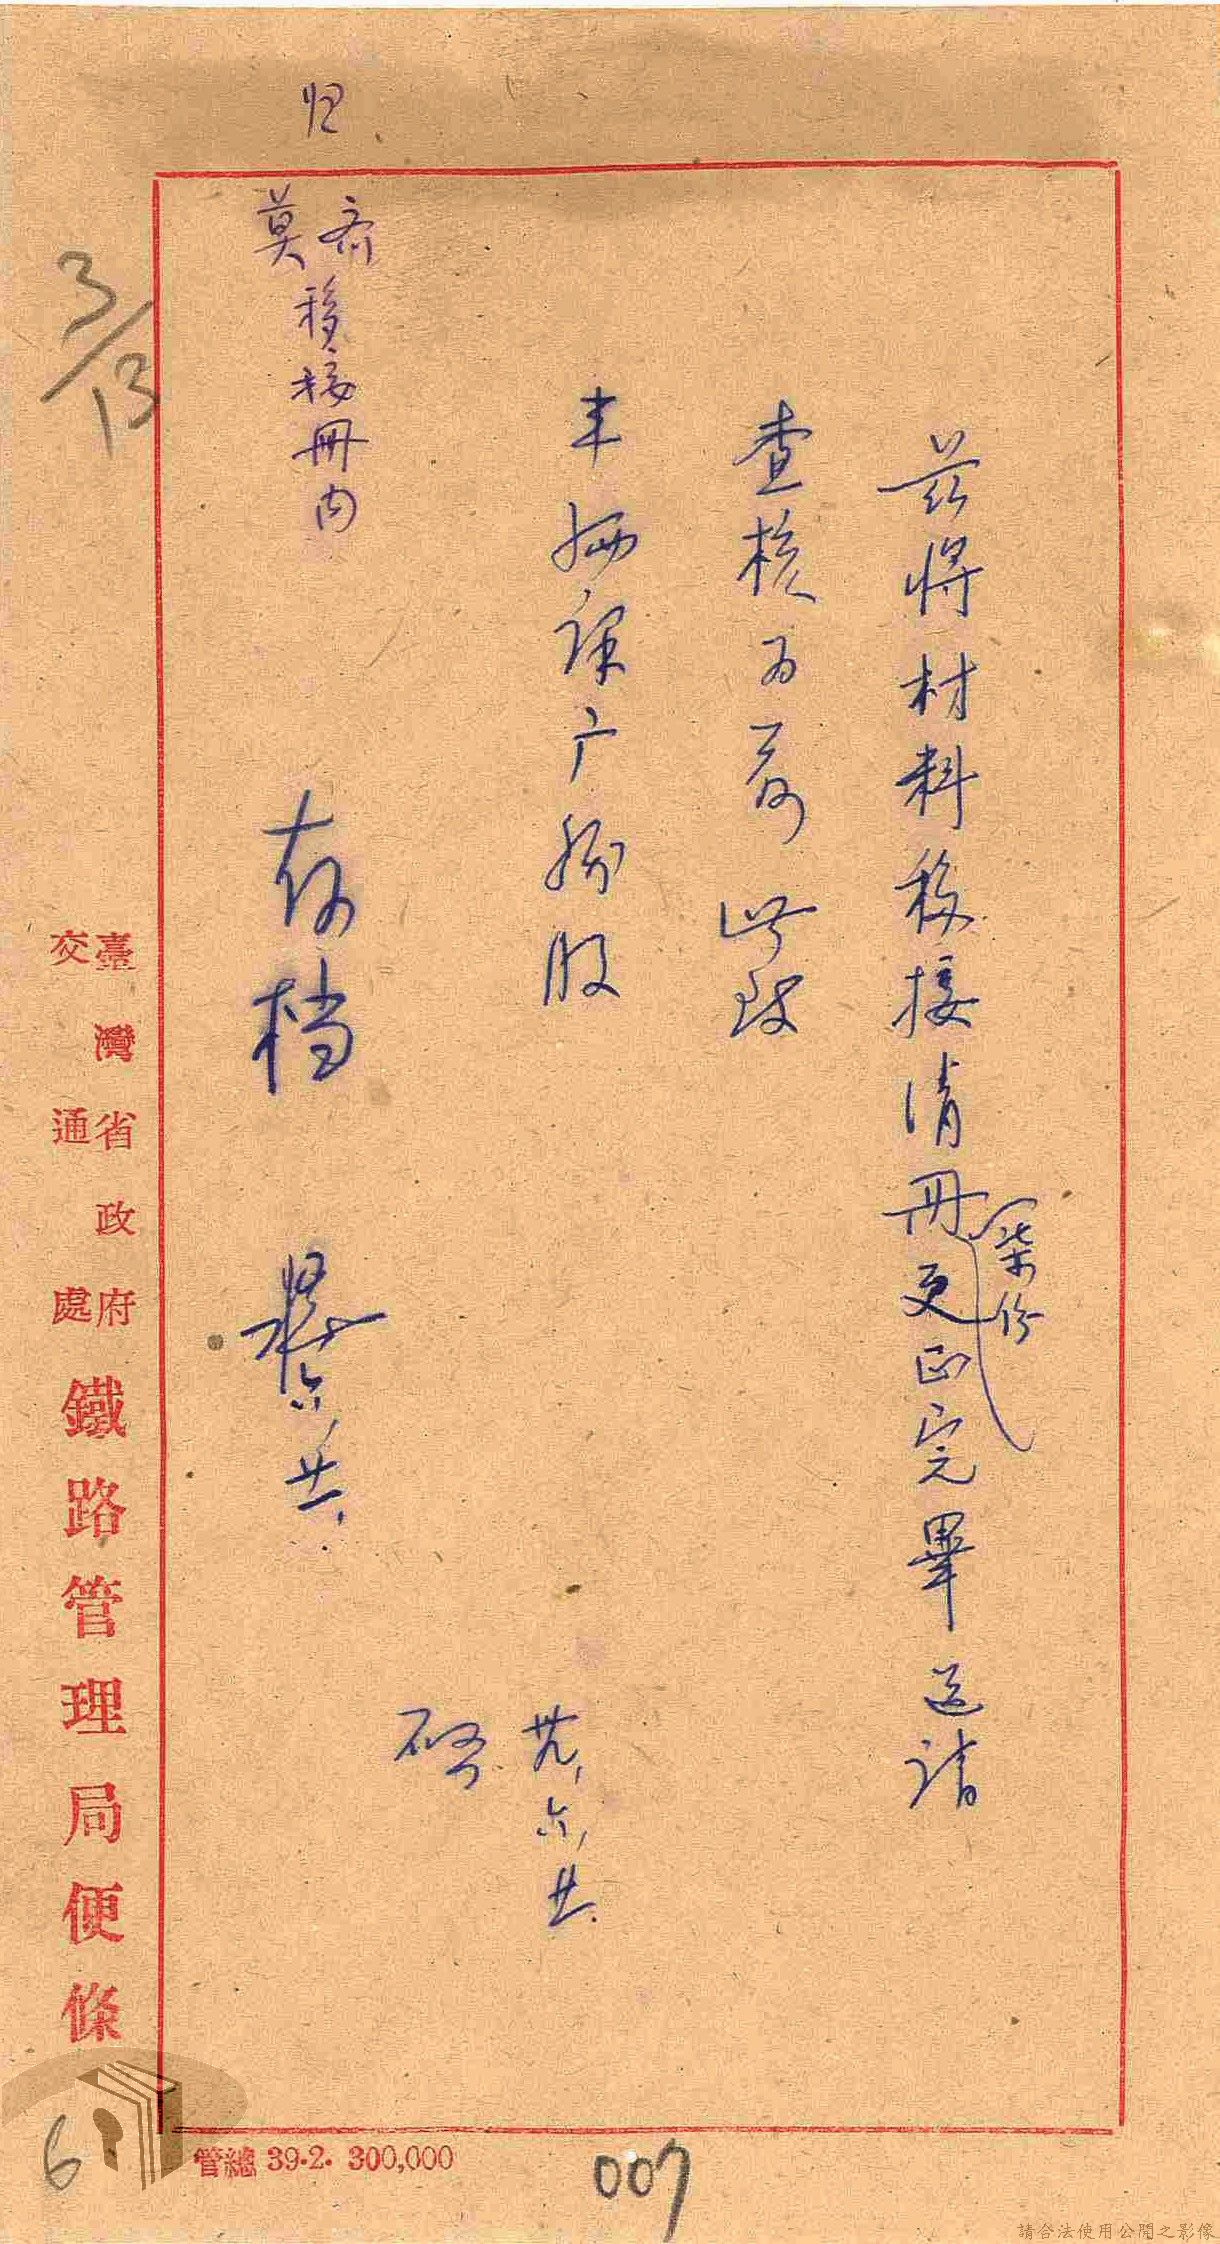 茲將材料移接清冊更正完畢送請
柒份
查核為荷 此致
課廠務股
卅九,六,廿.
存档
六,廿一,
齐
莫
移接冊內
归
3/13
臺灣省政府
交通處
鐵路管理局便條
管總 39.2. 300,000
007
6
請合法使用公開之影像